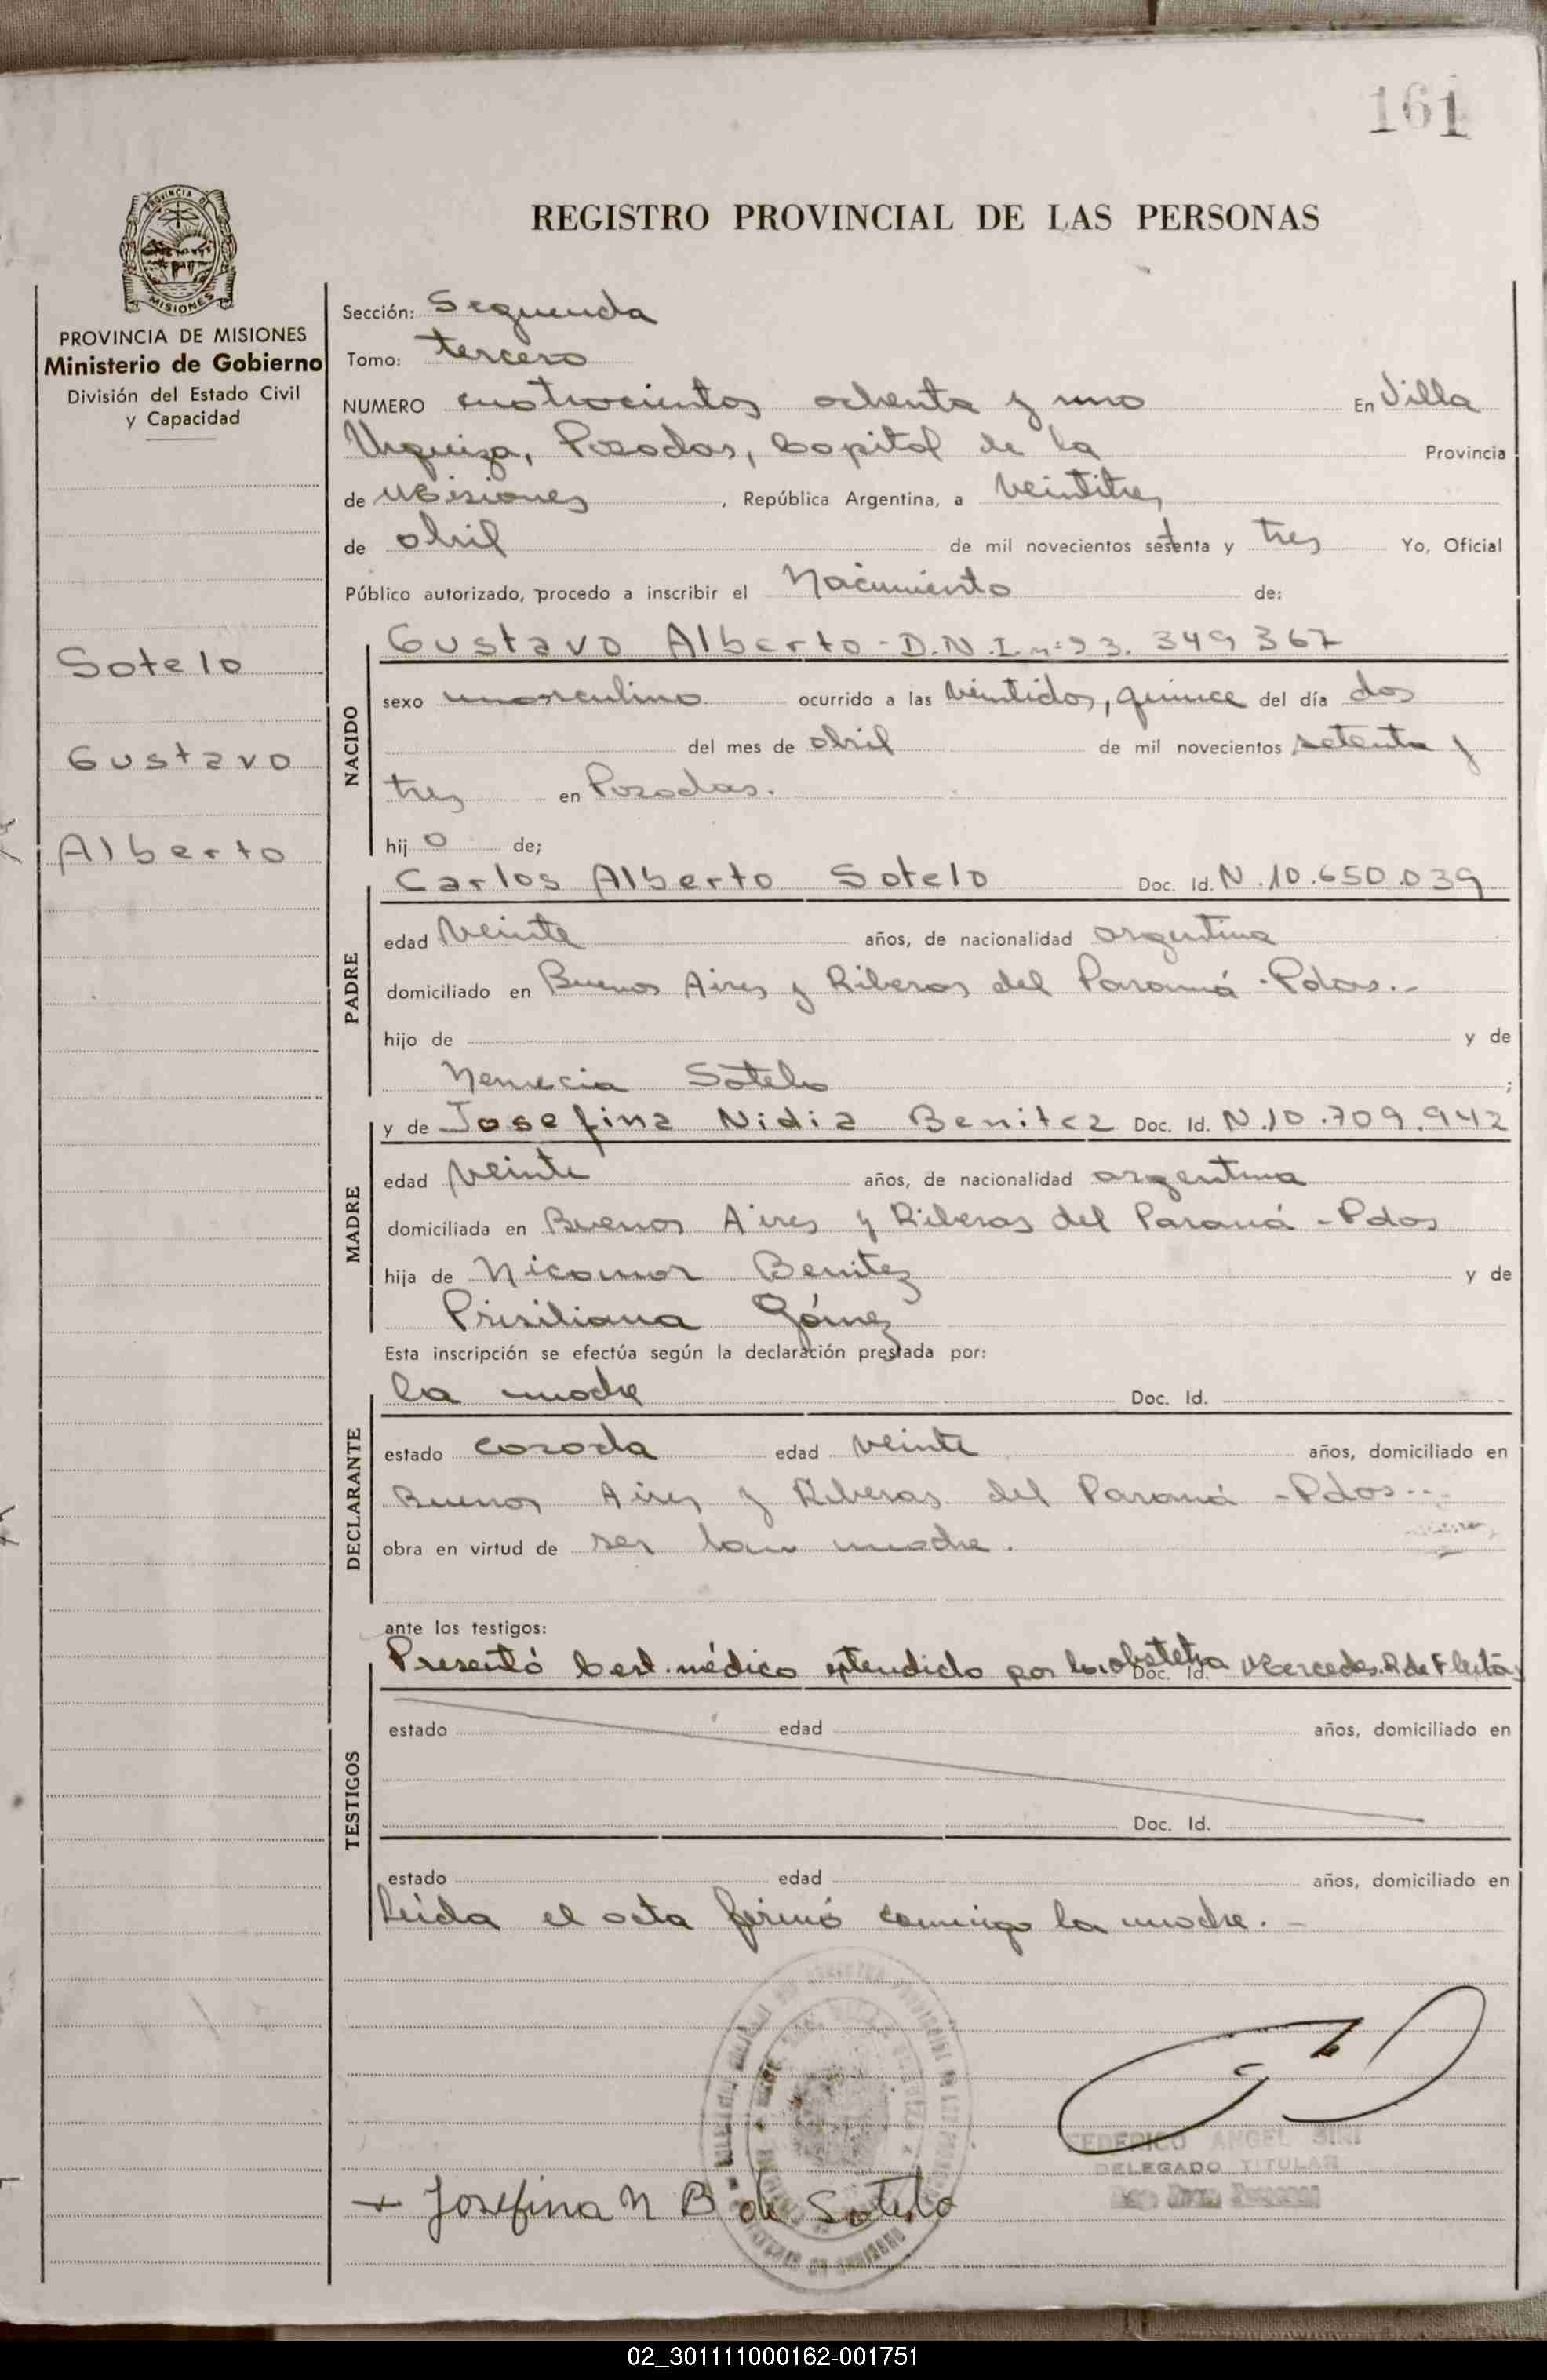 161
REGISTRO PROVINCIAL DE LAS PERSONAS
PROVINCIA DE
MISIONES
PROVINCIA DE MISIONES
Ministerio de Gobierno
División del Estado Civil
y Capacidad
Sotelo
Gustavo
Alberto
Sección: Segunda
Tomo: tercero
NUMERO cuatrocientos ochenta y uno En Villa
Urquiza, Posadas, Capital de la Provincia
de Misiones, República Argentina, a veintitres
de abril de mil novecientos setenta y tres Yo, Oficial
Público autorizado, procedo a inscribir el Nacimiento de:
NACIDO
Gustavo Alberto - D.N.I. nº 23.349367
sexo masculino ocurrido a las veintidos, quince del día dos
del mes de abril de mil novecientos setenta y
tres en Posadas.
hijo de;
PADRE
Carlos Alberto Sotelo Doc. Id. N.10.650.039
edad veinte años, de nacionalidad argentina
domiciliado en Buenos Aires y Riberas del Paraná - Pdas.-
hijo de y de
Nemecia Sotelo ;
MADRE
y de Josefina Nidia Benitez Doc. Id. N.10.709.942
edad veinte años, de nacionalidad argentina
domiciliada en Buenos Aires y Riberas del Paraná - Pdas
hija de Nicomor Benitez y de
Prisiliana Gómez
Esta inscripción se efectúa según la declaración prestada por:
DECLARANTE
la madre Doc. Id.
estado casada edad veinte años, domiciliado en
Buenos Aires y Riberas del Paraná - Pdas...
obra en virtud de ser la madre.
ante los testigos:
TESTIGOS
Presentó Cert. médico extendido por la obstetra Mercedes R. de Fleitas
Doc. Id.
estado edad años, domiciliado en
Doc. Id.
estado edad años, domiciliado en
Leída el acta firmó conmigo la madre.-
FEDERICO ANGEL SIRI
DELEGADO TITULAR
+ Josefina N B de Sotelo
02_301111000162-001751